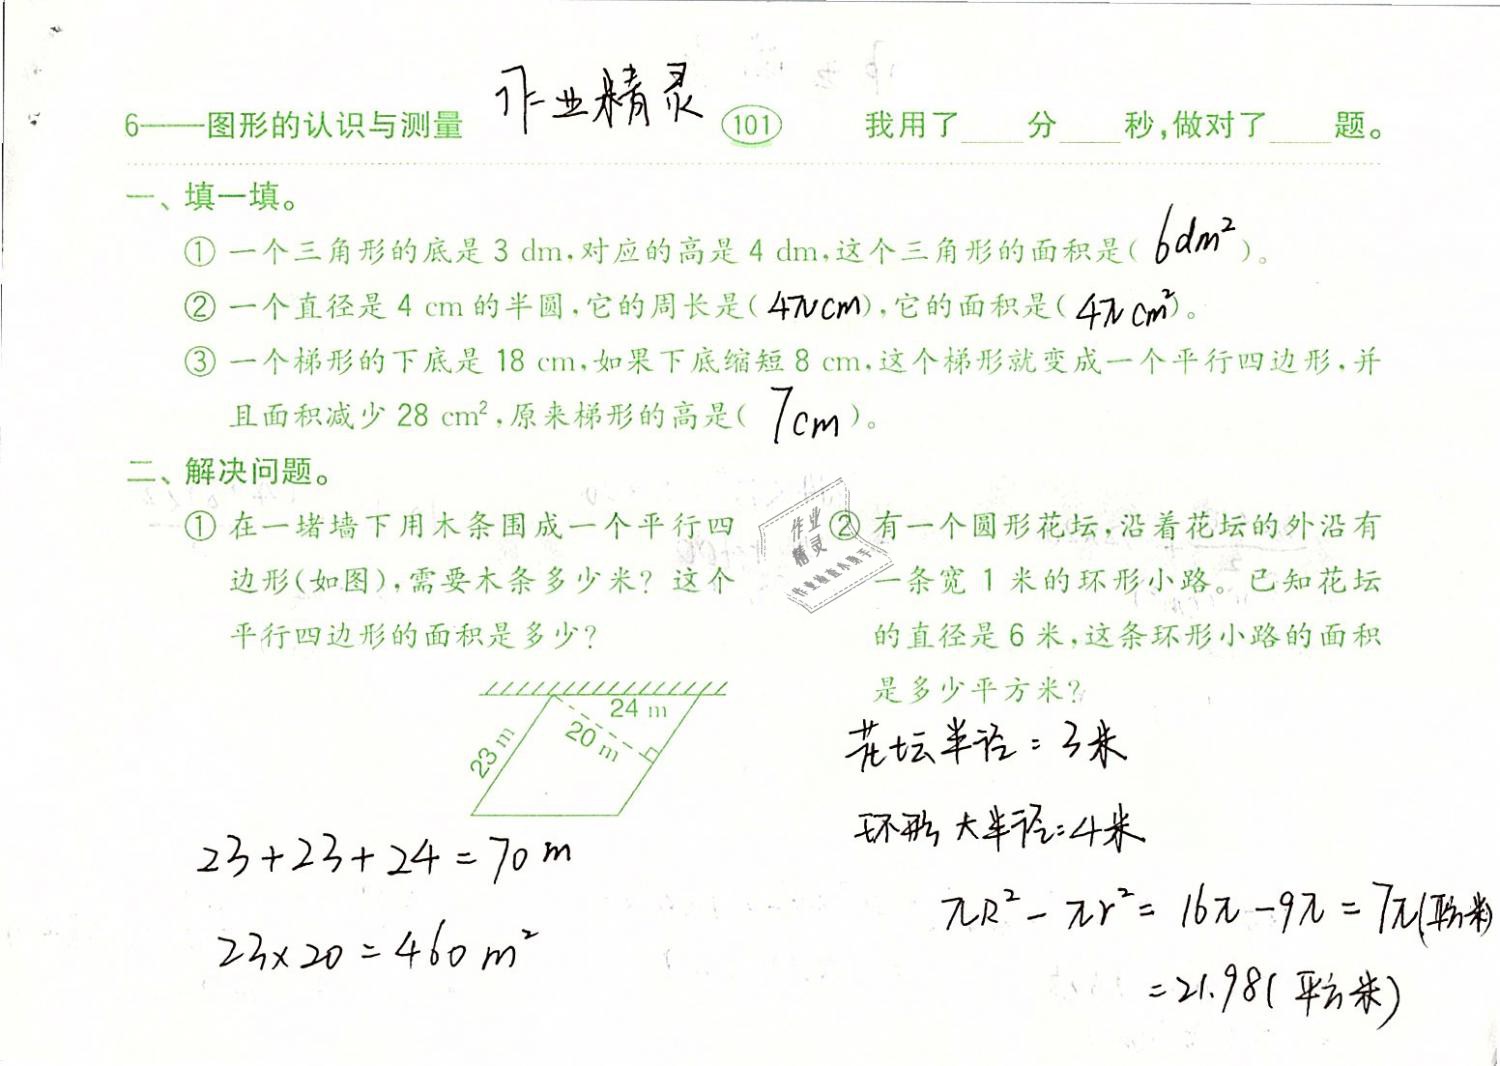 作业精灵
6——图形的认识与测量 101 我用了____分____秒,做对了____题。
一、填一填。
① 一个三角形的底是 3 dm,对应的高是 4 dm,这个三角形的面积是( 6dm² )。
② 一个直径是 4 cm 的半圆,它的周长是( 4πcm ),它的面积是( 4πcm² )。
③ 一个梯形的下底是 18 cm,如果下底缩短 8 cm,这个梯形就变成一个平行四边形,并
且面积减少 28 cm²,原来梯形的高是( 7cm )。
二、解决问题。
① 在一堵墙下用木条围成一个平行四
边形(如图),需要木条多少米？这个
平行四边形的面积是多少？
24 m
20 m
23 m
23+23+24=70m
23×20=460m²
作业
精灵
② 有一个圆形花坛,沿着花坛的外沿有
一条宽 1 米的环形小路。已知花坛
的直径是 6 米,这条环形小路的面积
是多少平方米？
花坛半径=3米
环形大半径=4米
πR²-πr²=16π-9π=7π(平方米)
=21.98(平方米)